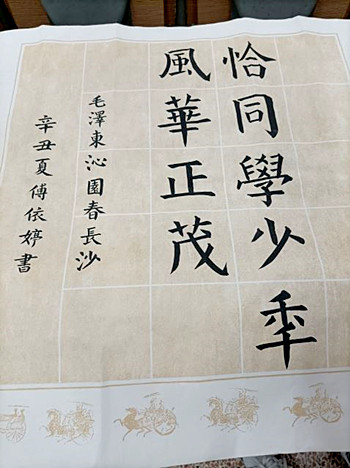 恰同學少年
風華正茂
毛澤東沁園春長沙
辛丑夏傅依婷書